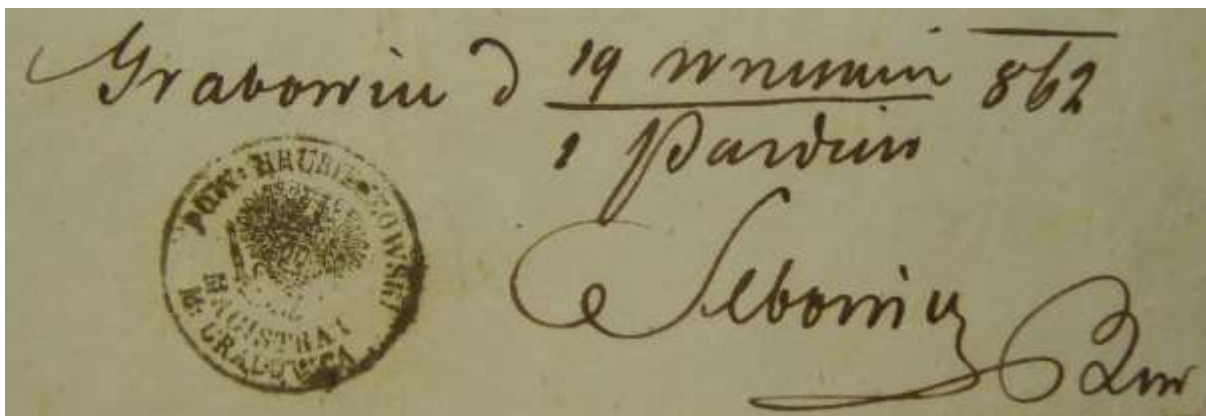 Grabowiec d 19 września 862
1 Paździer
POW: HRUBIESZOWSKI
MAGISTRAT
M. GRABOWCA